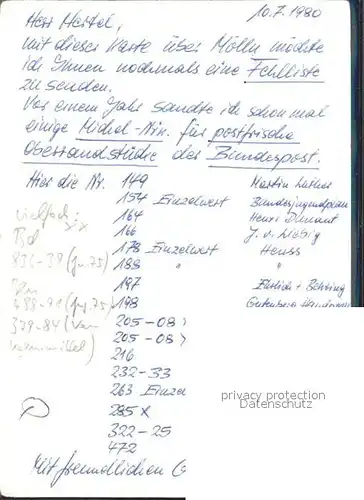 10.7.1980
Herr Hertel,
mit dieser Karte über Mölln möchte
ich Ihnen nochmals eine Fehlliste
zu senden.
Vor einem Jahr sandte ich schon mal
einige Michel-Nrn. für postfrische
Oberrandstücke der Bundespost.
Hier die Nr. 149 Martin Luther
154 Einzelwert Bundesjugendplan
164 Henri Dunant
166 J. v. Liebig
178 Einzelwert Heuss
188 "
197 Ehrlich + Behring
198 Gutenberg
205-08
205-08
216
232-33
263 Einzel
285 x
322-25
472
Mit freundlichen G
vielfach:
836-39 (Jug. 75)
Bln
488-91 (Jug. 75)
379-84
privacy protection
Datenschutz